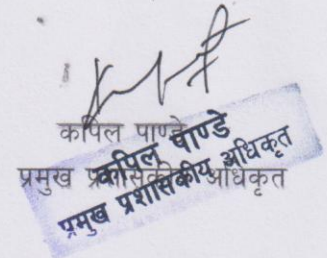 कपिल पाण्डे
प्रमुख प्रशासकीय अधिकृत
कपिल पाण्डे
प्रमुख प्रशासकीय अधिकृत